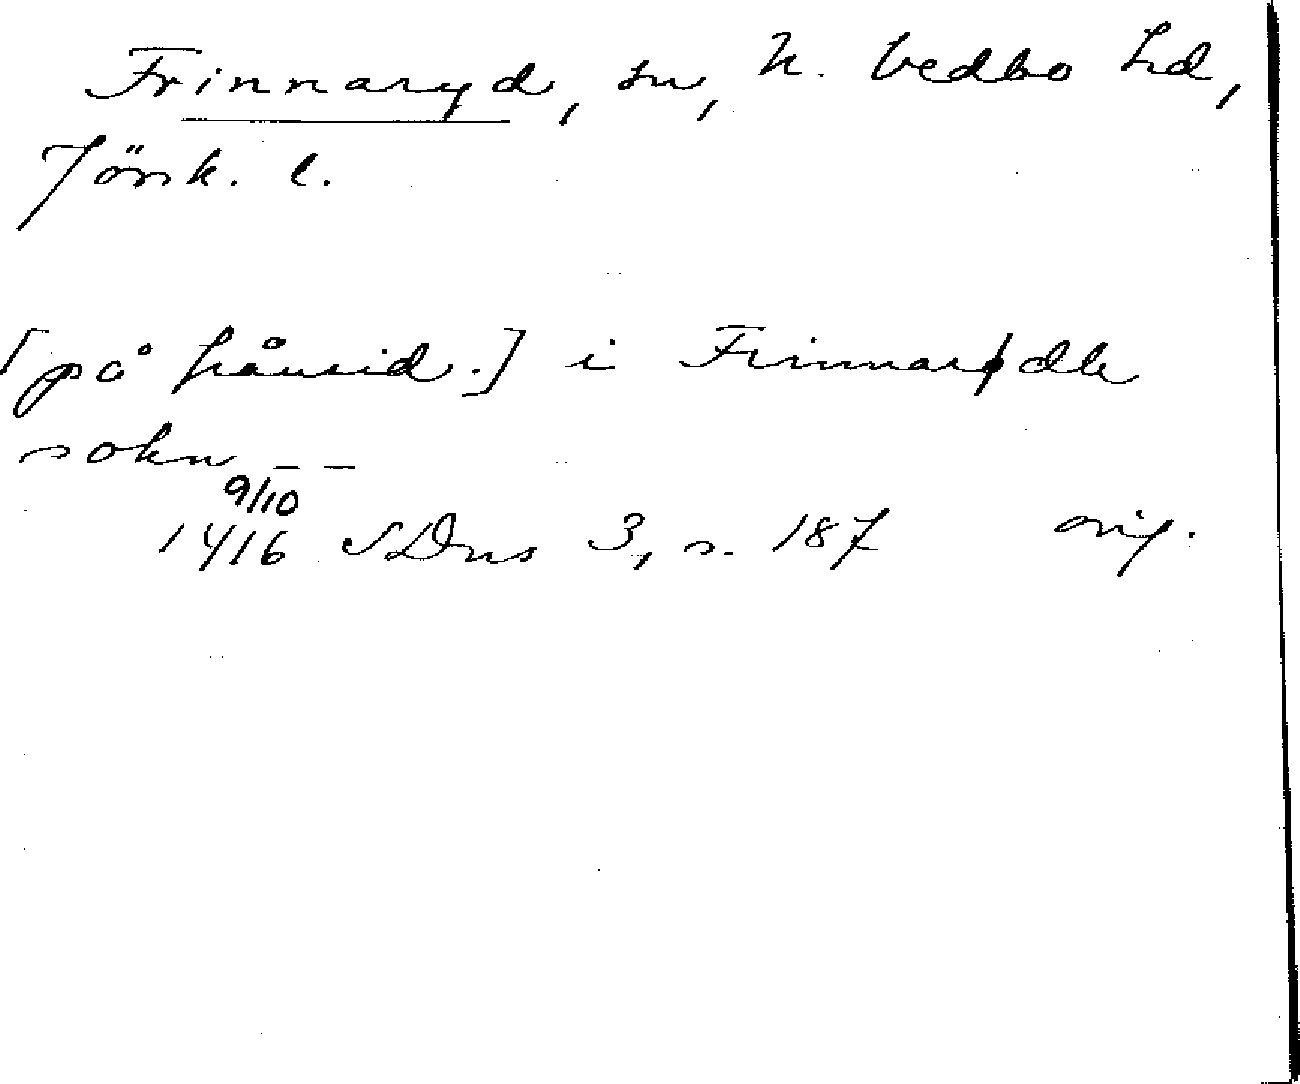 Frinnaryd, sn, N. Vedbo hd,
Jönk. l.
[på frånsid.] i Frinnarydh
sokn – –
9/10
1416 SDns 3, s. 187 orig.